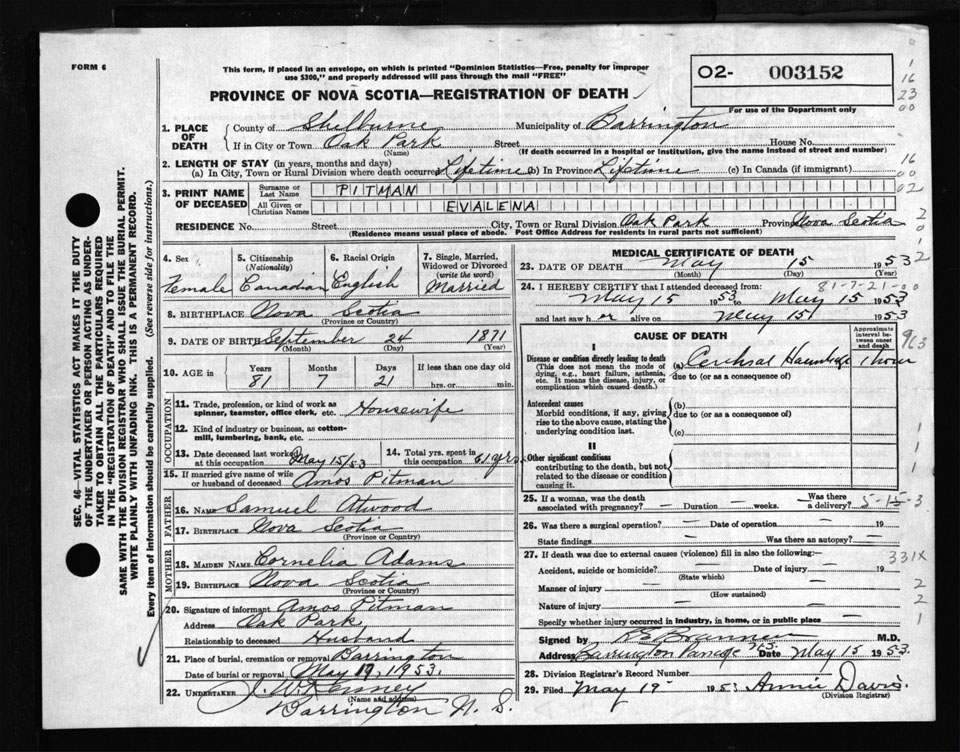 FORM 6
This form, if placed in an envelope, on which is printed "Dominion Statistics—Free, penalty for improper
use $300," and properly addressed will pass through the mail "FREE"
PROVINCE OF NOVA SCOTIA—REGISTRATION OF DEATH
02- 003152
For use of the Department only
1. PLACE OF DEATH
County of Shelburne Municipality of Barrington
If in City or Town Oak Park Street House No.
(Name) (If death occurred in a hospital or institution, give the name instead of street and number)
2. LENGTH OF STAY (in years, months and days)
(a) In City, Town or Rural Division where death occurred Lifetime (b) In Province Lifetime (c) In Canada (if immigrant)
3. PRINT NAME OF DECEASED
Surname or Last Name PITMAN
All Given or Christian Names EVALENA
RESIDENCE No. Street City, Town or Rural Division Oak Park Province Nova Scotia
(Residence means usual place of abode. Post Office Address for residents in rural parts not sufficient)
4. Sex Female
5. Citizenship (Nationality) Canadian
6. Racial Origin English
7. Single, Married, Widowed or Divorced (write the word) Married
8. BIRTHPLACE Nova Scotia
(Province or Country)
9. DATE OF BIRTH September 24 1871
(Month) (Day) (Year)
10. AGE Years 81 Months 7 Days 21 If less than one day old
hrs. or min.
OCCUPATION
11. Trade, profession, or kind of work as spinner, teamster, office clerk, etc. Housewife
12. Kind of industry or business, as cotton-mill, lumbering, bank, etc.
13. Date deceased last worked at this occupation May 15/53
14. Total yrs. spent in this occupation 61 yrs
15. If married give name of wife or husband of deceased Amos Pitman
FATHER
16. NAME Samuel Atwood
17. BIRTHPLACE Nova Scotia
(Province or Country)
MOTHER
18. MAIDEN NAME Cornelia Adams
19. BIRTHPLACE Nova Scotia
(Province or Country)
20. Signature of informant Amos Pitman
Address Oak Park
Relationship to deceased Husband
21. Place of burial, cremation or removal Barrington
Date of burial or removal May 19, 1953.
22. UNDERTAKER J. W. Kenney
(Name and address)
Barrington N. S.
MEDICAL CERTIFICATE OF DEATH
23. DATE OF DEATH May 15 1953
(Month) (Day) (Year)
81-7-21-00
24. I HEREBY CERTIFY that I attended deceased from:
May 15 1953 to May 15 1953
and last saw h er alive on May 15 1953
CAUSE OF DEATH
Approximate interval between onset and death
I
Disease or condition directly leading to death
(This does not mean the mode of dying, e.g., heart failure, asthenia, etc. It means the disease, injury, or complication which caused death.)
(a) Cerebral 1 hour
due to (or as a consequence of)
Antecedent causes
Morbid conditions, if any, giving rise to the above cause, stating the underlying condition last.
(b)
due to (or as a consequence of)
(c)
II
Other significant conditions
contributing to the death, but not related to the disease or condition causing it.
25. If a woman, was the death associated with pregnancy? — Duration — weeks. Was there a delivery? 5-15-3
26. Was there a surgical operation? — Date of operation — 19
State findings — Was there an autopsy? —
27. If death was due to external causes (violence) fill in also the following:— 331X
Accident, suicide or homicide? — Date of injury — 19
(State which)
Manner of injury —
(How sustained)
Nature of injury —
Specify whether injury occurred in industry, in home, or in public place —
Signed by M.D.
Address Barrington Passage N.S. Date May 15 1953.
28. Division Registrar's Record Number
29. Filed May 19 1953 Annie Davis.
(Division Registrar)
SEC. 46—VITAL STATISTICS ACT MAKES IT THE DUTY
OF THE UNDERTAKER OR PERSON ACTING AS UNDER-
TAKER TO OBTAIN ALL THE PARTICULARS REQUIRED
IN THE "REGISTRATION OF DEATH" AND TO FILE THE
SAME WITH THE DIVISION REGISTRAR WHO SHALL ISSUE THE BURIAL PERMIT.
WRITE PLAINLY WITH UNFADING INK. THIS IS A PERMANENT RECORD.
Every item of information should be carefully supplied. (See reverse side for instructions.)